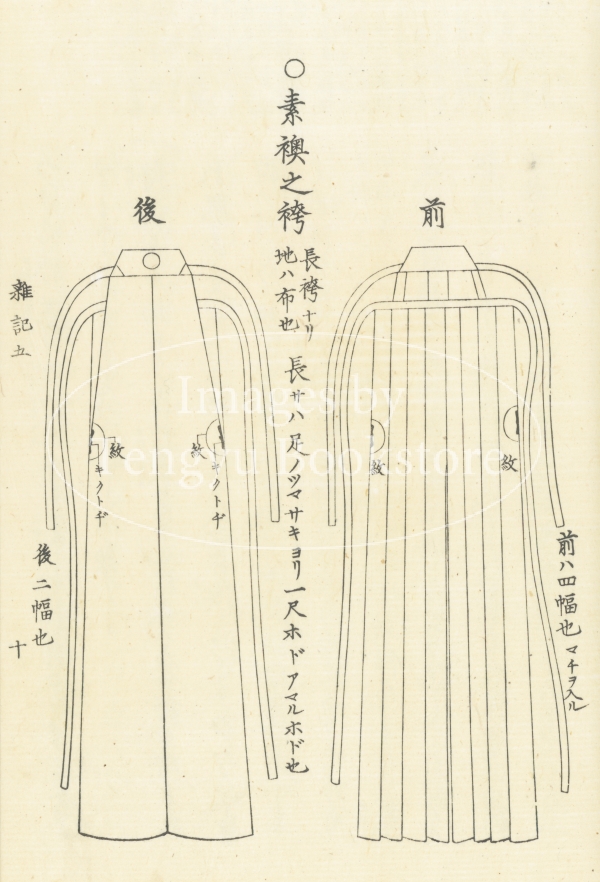 ○素襖之袴
長袴ナリ
地ハ布也
長サハ足ノツマサキヨリ一尺ホドアマルホド也
前
紋
紋
前ハ四幅也マチヲ入ル
後
紋
キクトヂ
紋
キクトヂ
後二幅也
雑記五
十
Images by
Fengru Bookstore